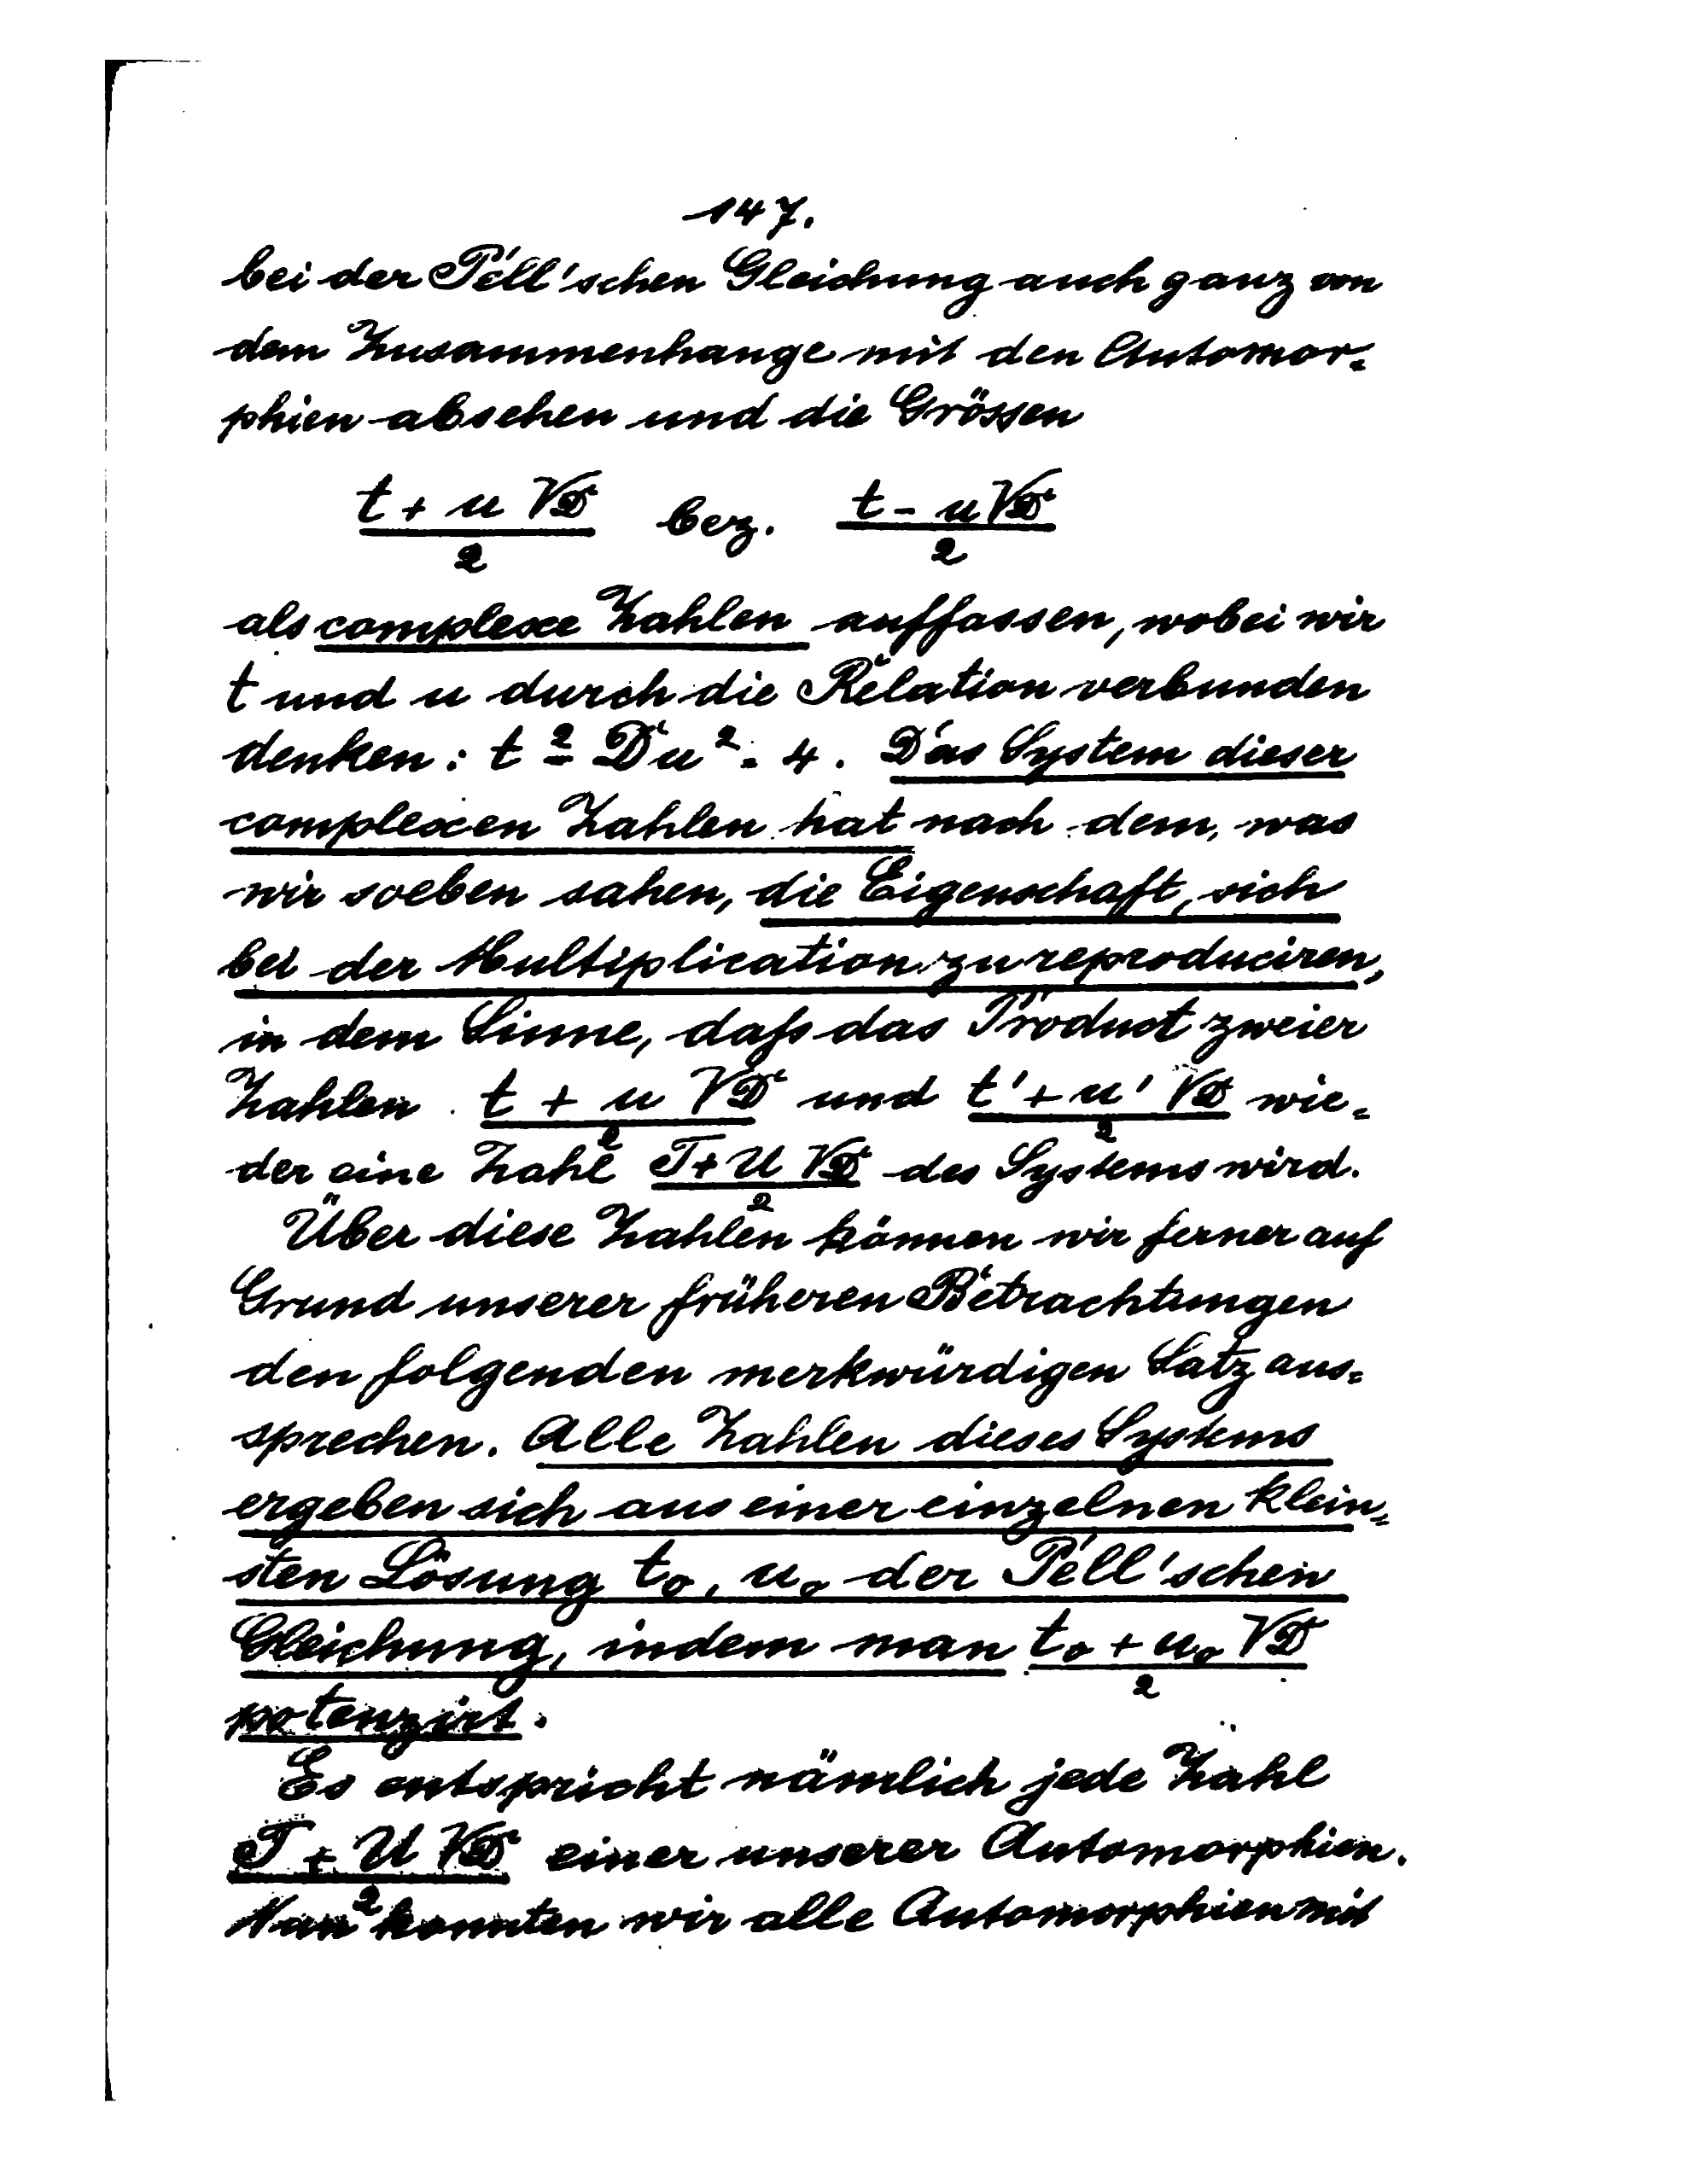 147.
bei der Pell'schen Gleichung auch ganz von
dem Zusammenhange mit den Automor-
phien absehen und die Grössen
(t + u √D)/2 bez. (t - u √D)/2
als complexe Zahlen auffassen, wobei wir
t und u durch die Relation verbunden
denken: t² - Du² = 4. Das System dieser
complexen Zahlen hat nach dem, was
wir soeben sahen, die Eigenschaft, sich
bei der Multiplication zu reproduciren,
in dem Sinne, daß das Product zweier
Zahlen (t + u √D)/2 und (t' + u' √D)/2 wie-
der eine Zahl (T + U √D)/2 des Systems wird.
Über diese Zahlen können wir ferner auf
Grund unserer früheren Betrachtungen
den folgenden merkwürdigen Satz aus-
sprechen. Alle Zahlen dieses Systems
ergeben sich aus einer einzelnen klein-
sten Lösung t₀, u₀ der Pell'schen
Gleichung, indem man (t₀ + u₀ √D)/2
potenzirt.
Es entspricht nämlich jede Zahl
(T + U √D)/2 einer unserer Automorphien.
Nun konnten wir alle Automorphien mit